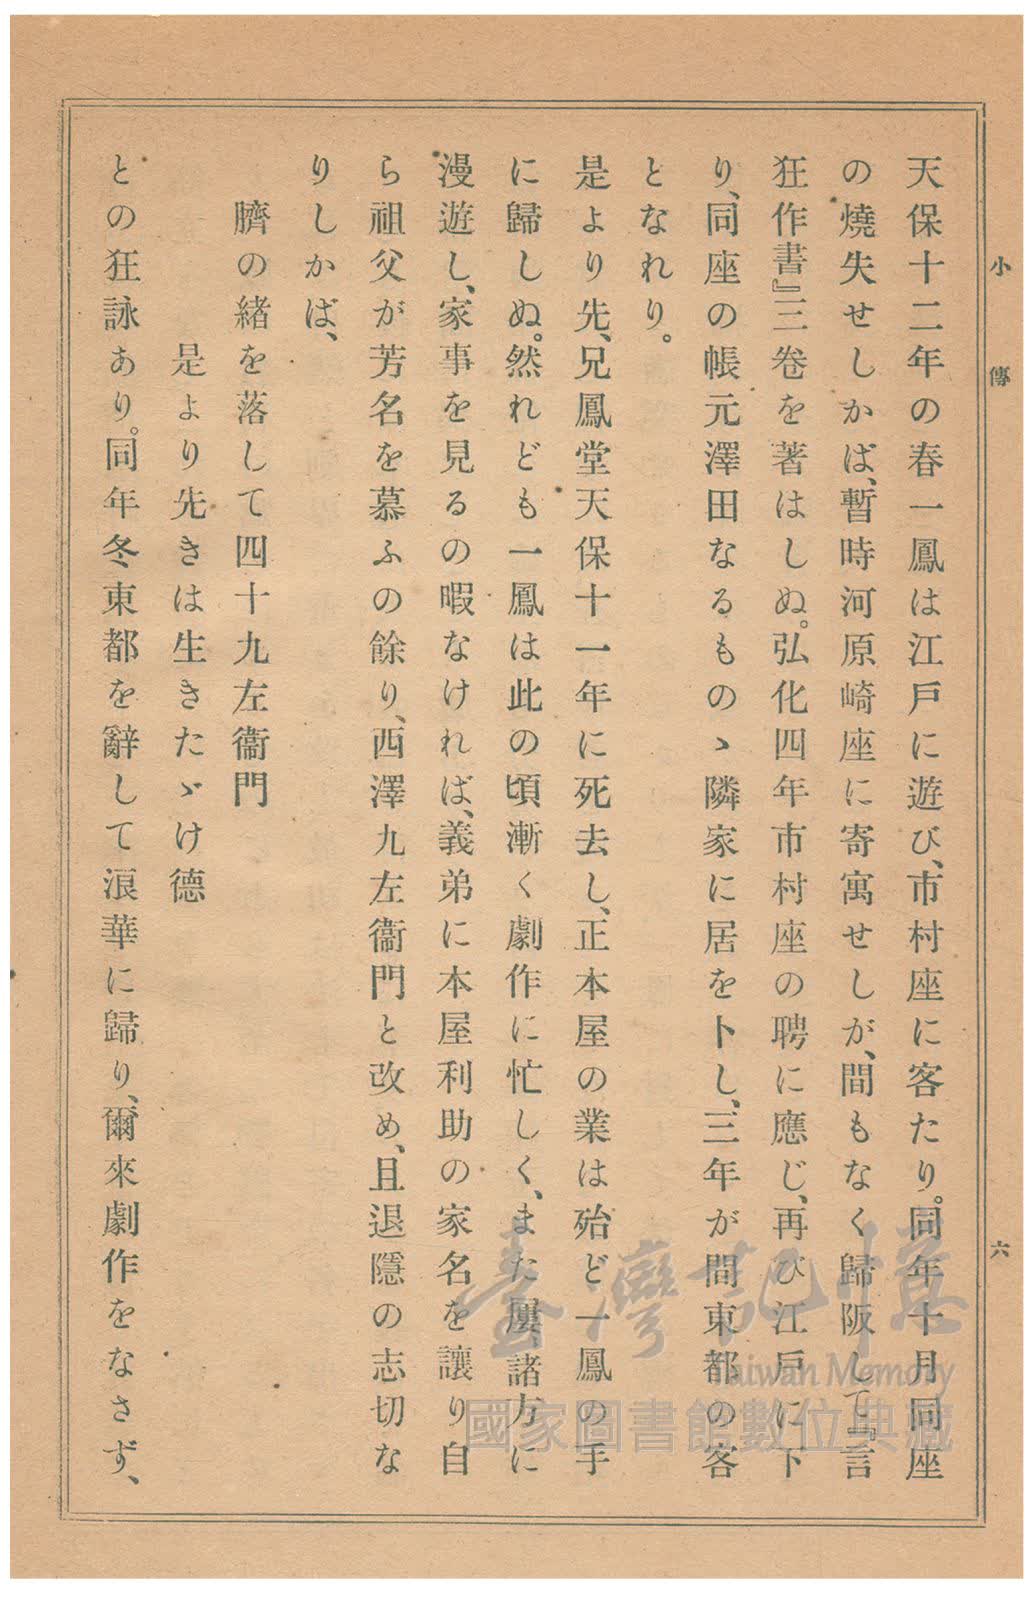 小傳
六
天保十二年の春一鳳は江戸に遊び、市村座に客たり。同年十月同座
の燒失せしかば、暫時河原崎座に寄寓せしが、間もなく歸阪して『言
狂作書』三卷を著はしぬ。弘化四年市村座の聘に應じ、再び江戸に下
り、同座の帳元澤田なるものゝ隣家に居を卜し、三年が間東都の客
となれり。
是より先、兄鳳堂天保十一年に死去し、正本屋の業は殆ど一鳳の手
に歸しぬ。然れども一鳳は此の頃漸く劇作に忙しく、また屢〻諸方に
漫遊し、家事を見るの暇なければ、義弟に本屋利助の家名を讓り自
ら祖父が芳名を慕ふの餘り、西澤九左衞門と改め、且退隱の志切な
りしかば、
臍の緒を落して四十九左衞門
是より先きは生きたゞけ德
との狂詠あり。同年冬東都を辭して浪華に歸り、爾來劇作をなさず、
臺灣記憶
Taiwan Memory
國家圖書館數位典藏